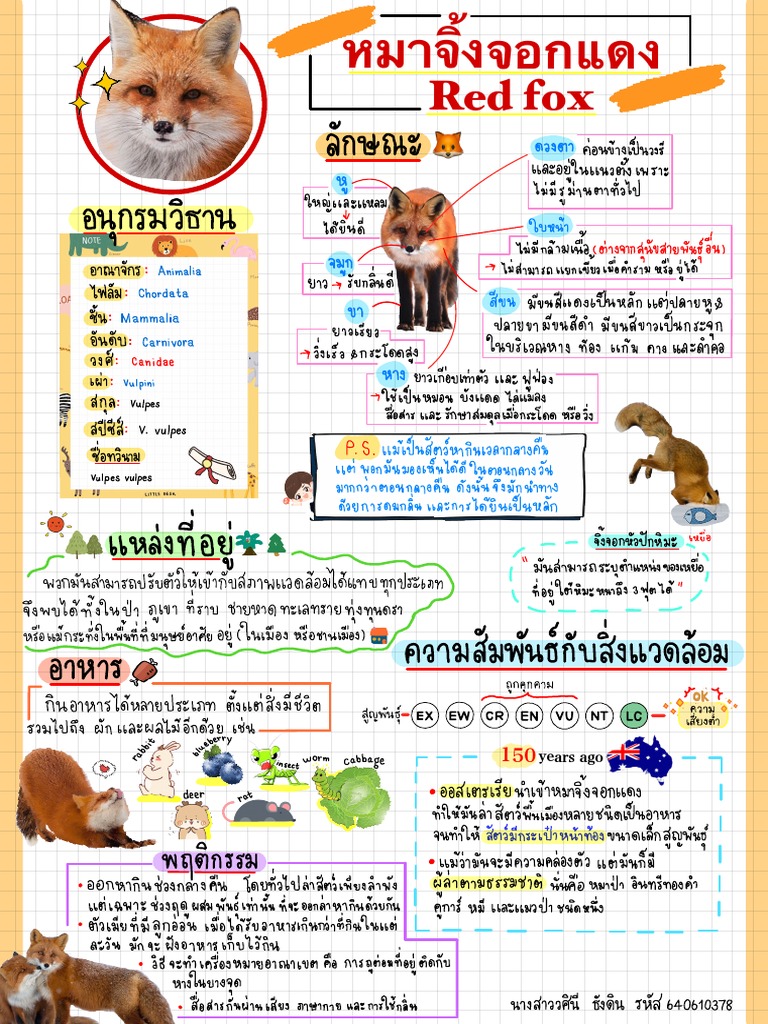 หมาจิ้งจอกแดง
Red fox
ลักษณะ
ดวงตา ค่อนข้างเป็นวงรี
และอยู่ในแนวตั้ง เพราะ
ไม่มีรูม่านตาทั่วไป
หู
ใหญ่และแหลม
ได้ยินดี
ใบหน้า
ไม่มีกล้ามเนื้อ (ต่างจากสุนัขสายพันธุ์อื่น)
→ ไม่สามารถแยกเขี้ยวเมื่อคำราม หรือ ขู่ได้
จมูก
ยาว → รับกลิ่นดี
สีขน มีขนสีแดงเป็นหลัก แต่ปลายหู &
ปลายขามีขนสีดำ มีขนสีขาวเป็นกระจุก
ในบริเวณหาง ท้อง แก้ม คาง และลำคอ
ขา
ยาวเรียว
→ วิ่งเร็ว & กระโดดสูง
หาง ยาวเกือบเท่าตัว และ ฟูฟ่อง
→ ใช้เป็นหมอน บังแดด ไล่แมลง
สื่อสาร และ รักษาสมดุลเมื่อกระโดด หรือวิ่ง
อนุกรมวิธาน
NOTE
อาณาจักร: Animalia
ไฟลัม: Chordata
ชั้น: Mammalia
อันดับ: Carnivora
วงศ์: Canidae
เผ่า: Vulpini
สกุล: Vulpes
สปีชีส์: V. vulpes
ชื่อทวินาม
Vulpes vulpes
P.S. แม้เป็นสัตว์หากินเวลากลางคืน
แต่ พวกมันมองเห็นได้ดีในตอนกลางวัน
มากกว่าตอนกลางคืน ดังนั้นจึงมักนำทาง
ด้วยการดมกลิ่น และการได้ยินเป็นหลัก
เหยื่อ
จิ้งจอกหัวปักหิมะ
"มันสามารถระบุตำแหน่งของเหยื่อ
ที่อยู่ใต้หิมะหนาถึง 3 ฟุตได้"
แหล่งที่อยู่
พวกมันสามารถปรับตัวให้เข้ากับสภาพแวดล้อมได้แทบทุกประเภท
จึงพบได้ทั้งในป่า ภูเขา ที่ราบ ชายหาด ทะเลทราย ทุ่งทุนดรา
หรือแม้กระทั่งในพื้นที่ที่มนุษย์อาศัยอยู่ (ในเมือง หรือชานเมือง)
อาหาร
กินอาหารได้หลายประเภท ตั้งแต่สิ่งมีชีวิต
รวมไปถึง ผัก และผลไม้อีกด้วย เช่น
rabbit
blueberry
insect
worm
cabbage
deer
rat
ความสัมพันธ์กับสิ่งแวดล้อม
ถูกคุกคาม
สูญพันธุ์ EX EW CR EN VU NT LC
OK
ความ
เสี่ยงต่ำ
150 years ago
• ออสเตรเรีย นำเข้าหมาจิ้งจอกแดง
ทำให้มันล่าสัตว์พื้นเมืองหลายชนิดเป็นอาหาร
จนทำให้ สัตว์มีกระเป๋าหน้าท้องขนาดเล็กสูญพันธุ์
• แม้ว่ามันจะมีความคล่องตัว แต่มันก็มี
ผู้ล่าตามธรรมชาติ นั่นคือ หมาป่า อินทรีทองคำ
คูการ์ หมี และแมวป่าชนิดหนึ่ง
พฤติกรรม
• ออกหากินช่วงกลางคืน โดยทั่วไปล่าสัตว์เพียงลำพัง
แต่เฉพาะช่วงฤดูผสมพันธุ์เท่านั้น ที่จะออกล่าหากินด้วยกัน
• ตัวเมียที่มีลูกอ่อน เมื่อได้รับอาหารเกินกว่าที่กินในแต่
ละวัน มักจะ ฝังอาหารเก็บไว้กิน
• วิธีจะทำเครื่องหมายอาณาเขต คือ การถูต่อมที่อยู่ติดกับ
หางในบางจุด
• สื่อสารกันผ่านเสียง ภาษากาย และการใช้กลิ่น
นางสาววศินี ธังดิน รหัส 640610378